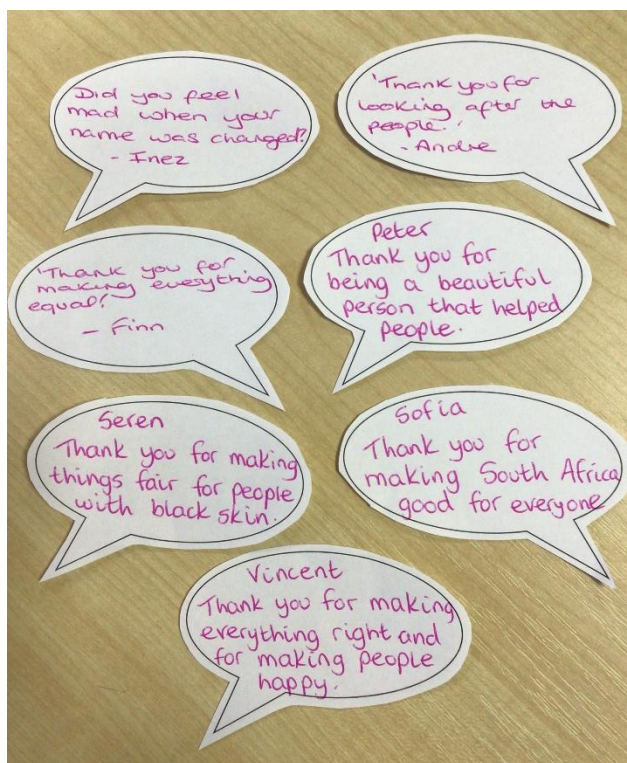 Did you feel
mad when your
name was changed?
- Inez
'Thank you for
looking after the
people.'
- Andre
'Thank you for
making everything
equal!
- Finn
Peter
Thank you for
being a beautiful
person that helped
people.
Seren
Thank you for making
things fair for people
with black skin.
Sofia
Thank you for
making South Africa
good for everyone
Vincent
Thank you for making
everything right and
for making people
happy.